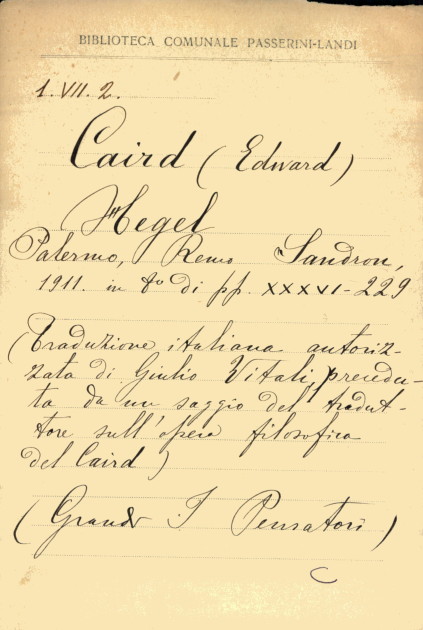 BIBLIOTECA COMUNALE PASSERINI-LANDI
1.VII.2.
Caird (Edward)
Hegel
Palermo, Remo Sandron,
1911. in 8º di pp. XXXVI-229
(Traduzione italiana autoriz-
zata di Giulio Vitali, precedu-
ta da un saggio del tradut-
tore sull'opera filosofica
del Caird)
(Grandi I Pensatori)